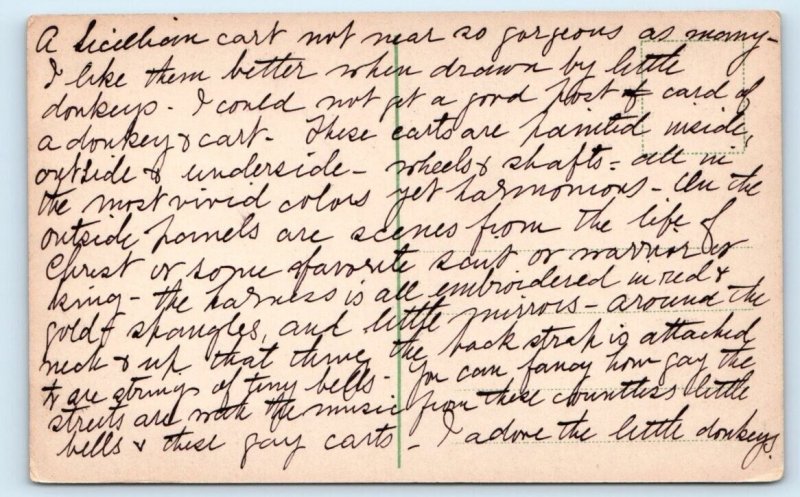 A Sicillian cart not near so gorgeous as many-
I like them better when drawn by little
donkeys - I could not get a good post card of
a donkey & cart - These carts are painted inside,
outside & underside - wheels & shafts - all in
the most vivid colors yet harmonious - On the
outside panels are scenes from the life of
Christ or some favorite saint or warrior or
king - the harness is all embroidered in red &
gold & spangles, and little mirrors - around the
neck & up that thing the back strap is attached
to are strings of tiny bells - You can fancy how gay the
streets are with the music from these countless little
bells & these gay carts - I adore the little donkeys.